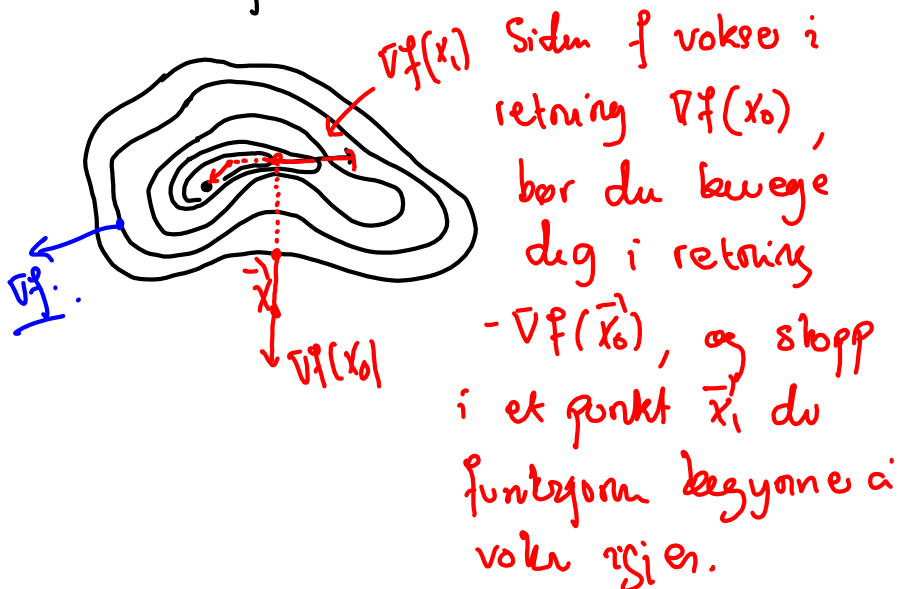 ∇f(x₁)
Siden f vokser i
retning ∇f(x₀),
bør du bevege
deg i retning
-∇f(x⃗₀), og stopp
i et punkt x⃗₁ du
funksjonen begynner å
vokse igjen.
∇f.
x⃗₀
∇f(x₀)